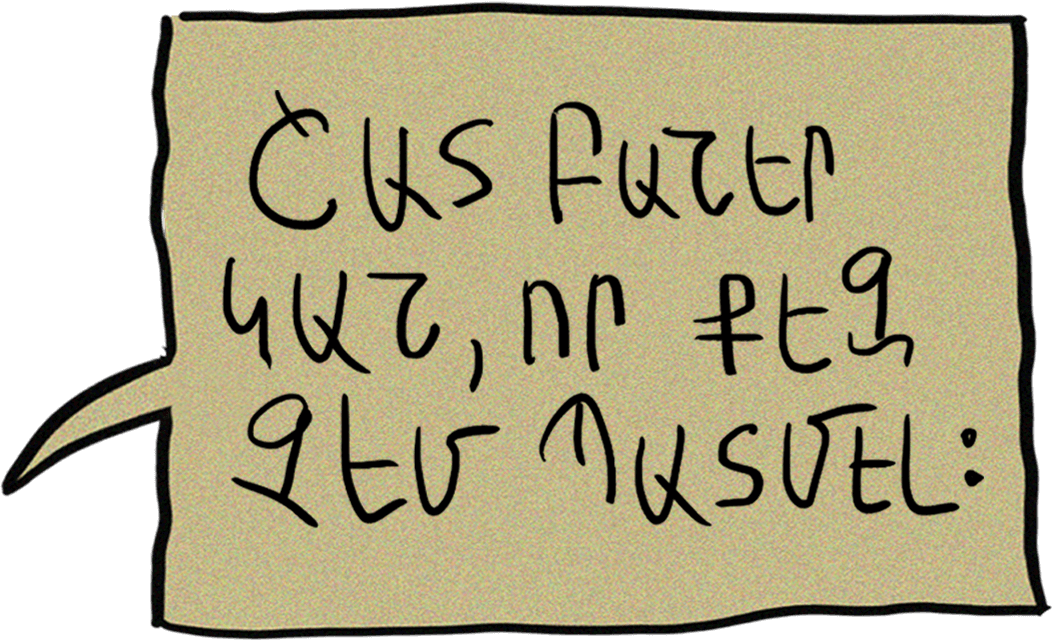 ՇԱՏ ԲԱՆԵՐ
ԿԱՆ, ՈՐ ՔԵԶ
ՉԵՄ ՊԱՏՄԵԼ։